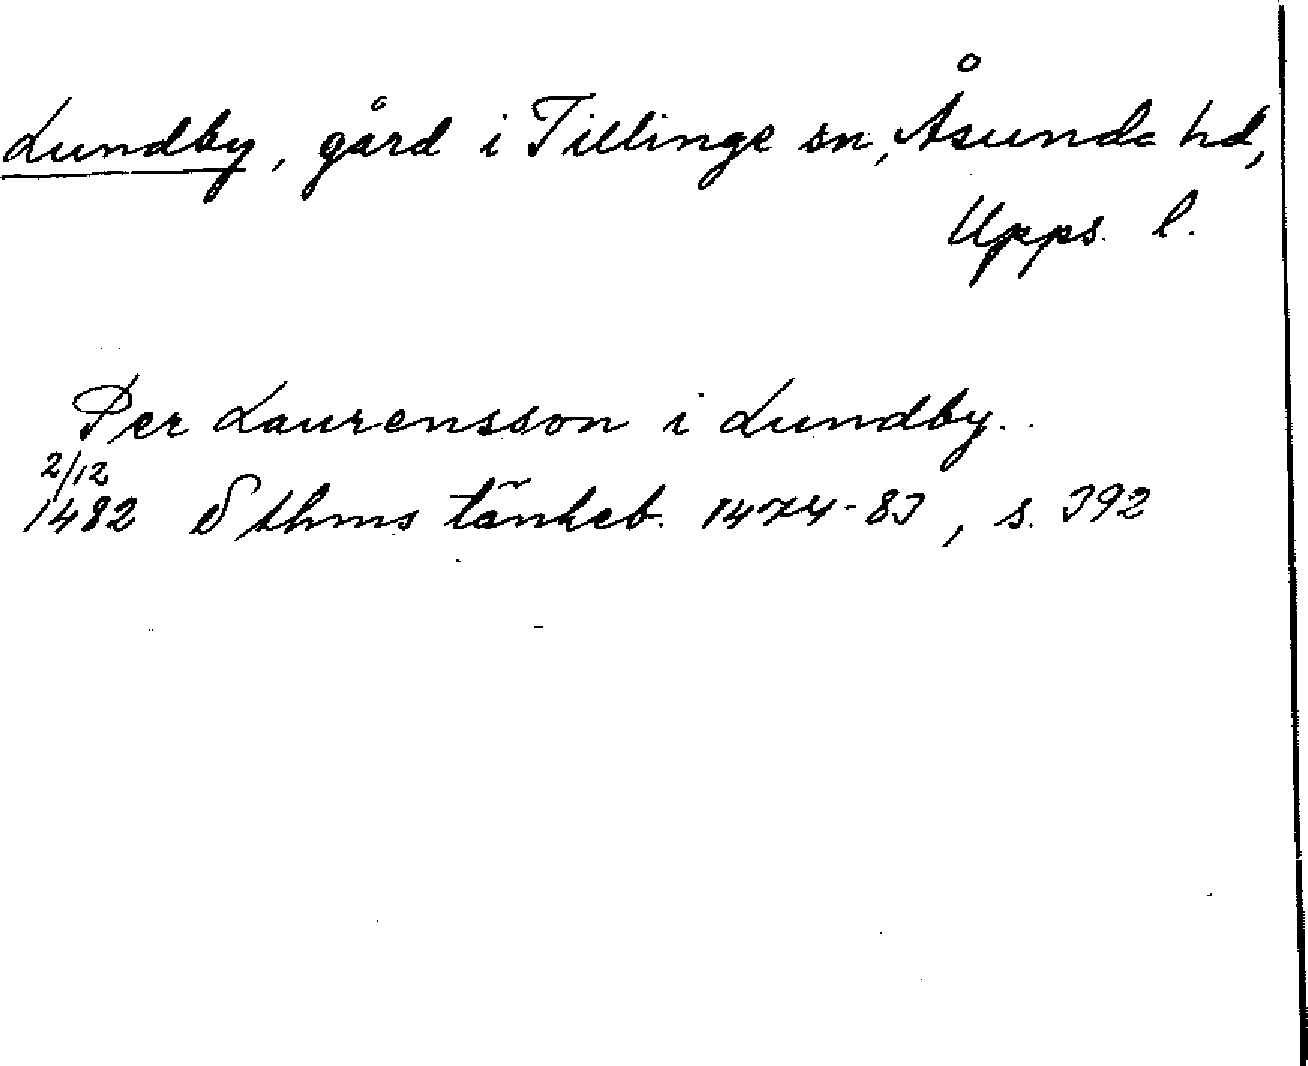 Lundby, gård i Tillinge sn, Åsunda hd,
Upps. l.
Per Laurensson i Lundby.
2/12
1482 Sthms tänkeb. 1474-83, s. 392